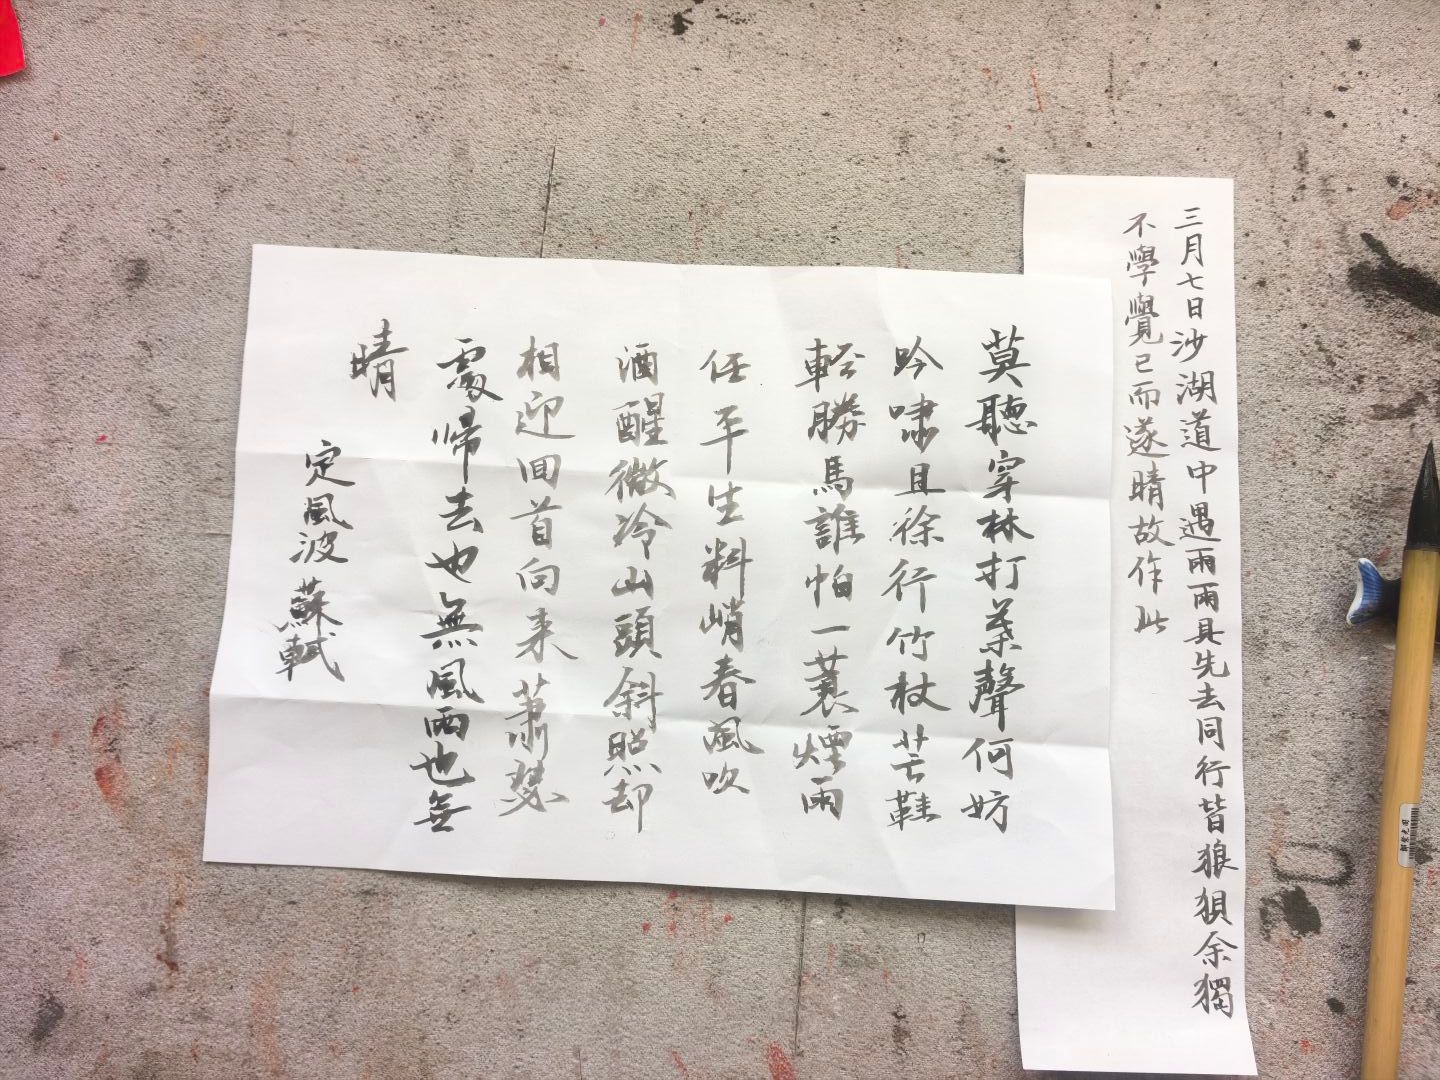 三月七日沙湖道中遇雨雨具先去同行皆狼狽余獨
不學覺已而遂晴故作此
莫聽穿林打葉聲何妨
吟嘯且徐行竹杖芒鞋
輕勝馬誰怕一蓑煙雨
任平生料峭春風吹
酒醒微冷山頭斜照却
相迎回首向来蕭瑟
處歸去也無風雨也無
晴
定風波蘇軾